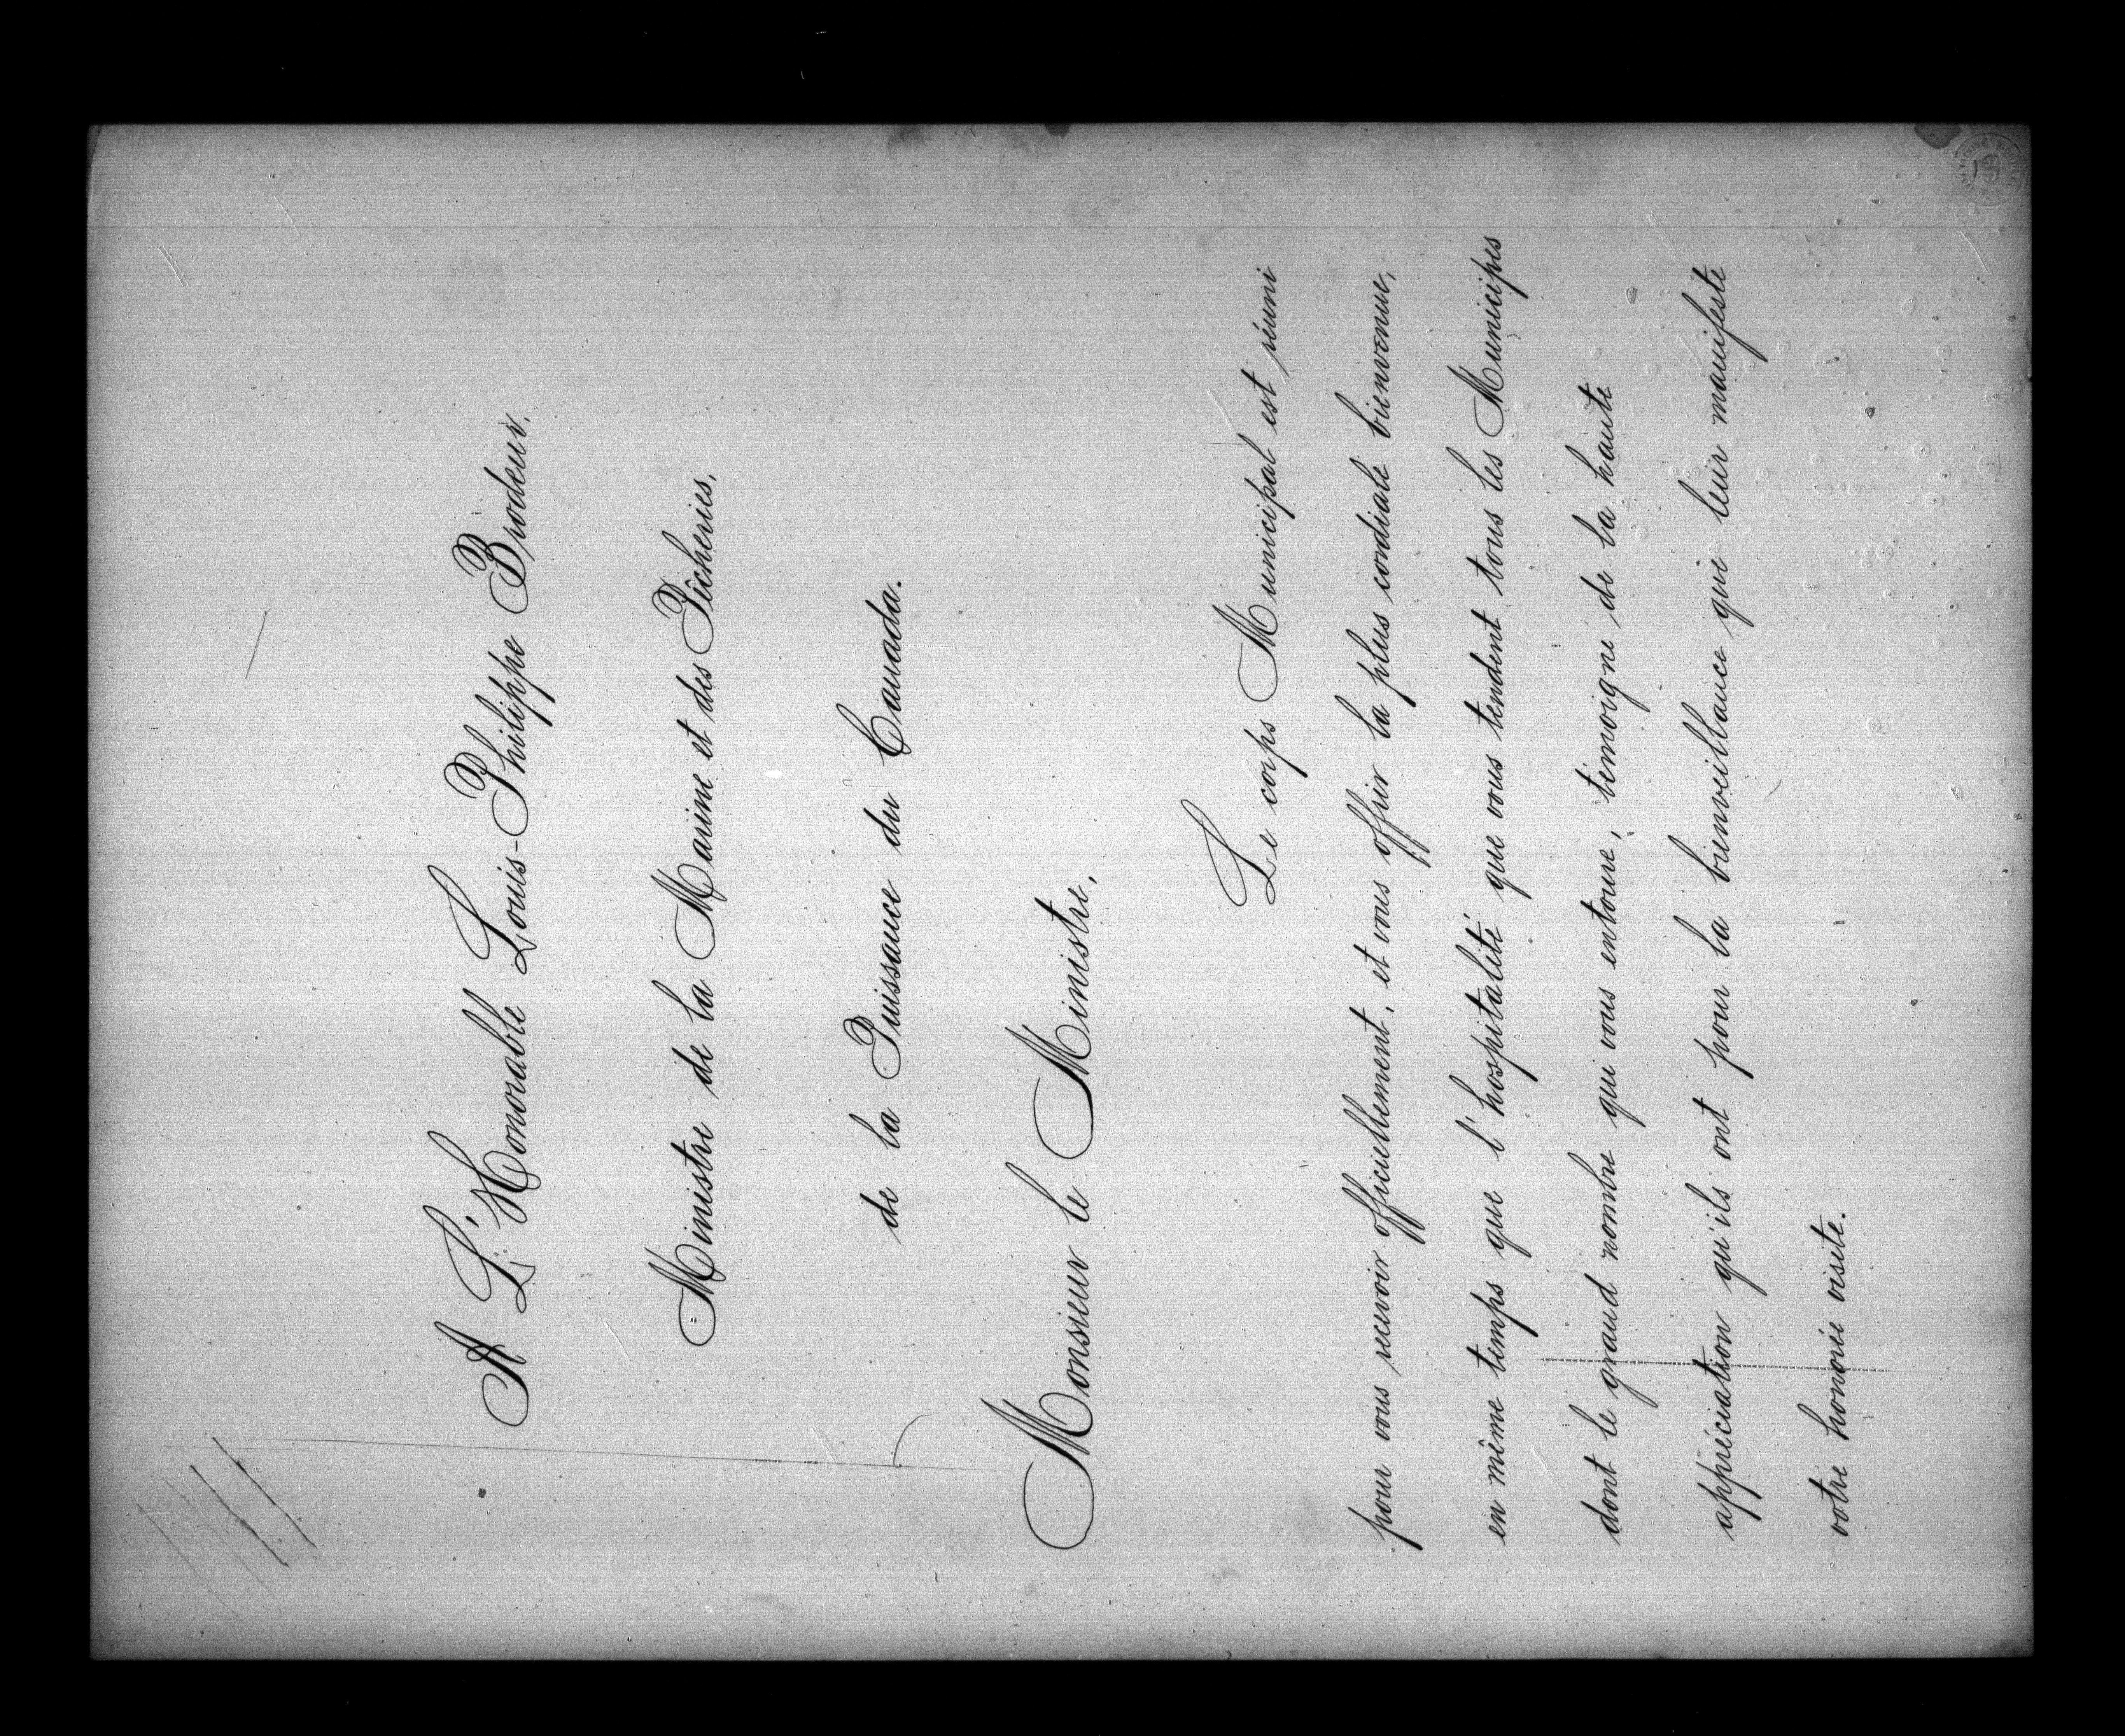 A L'Honorable Louis-Philippe Brodeur.
Ministre de la Marine et des Pêcheries,
de la Puissance du Canada.
Monsieur le Ministre,
Le corps Municipal est réuni
pour vous recevoir officiellement, et vous offrir la plus cordiale bienvenue,
en même temps que l'hospitalité que vous tendent tous les Municipes
dont le grand nombre qui vous entoure, témoigne de la haute
appréciation qu'ils ont pour la bienveillance que leur manifeste
votre honorée visite.